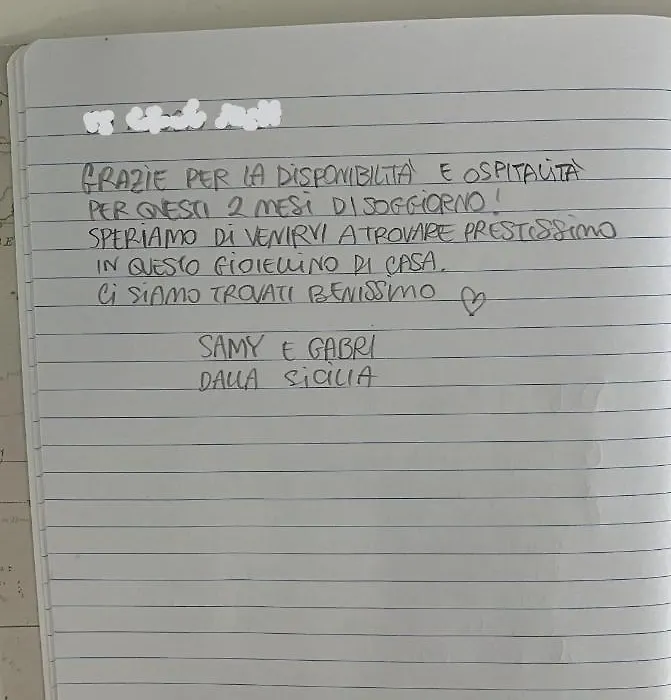 GRAZIE PER LA DISPONIBILITÀ E OSPITALITÀ
PER QUESTI 2 MESI DI SOGGIORNO!
SPERIAMO DI VENIRVI A TROVARE PRESTISSIMO
IN QUESTO GIOIELLINO DI CASA.
Ci SIAMO TROVATI BENISSIMO ♡
SAMY E GABRI
DALLA SICILIA